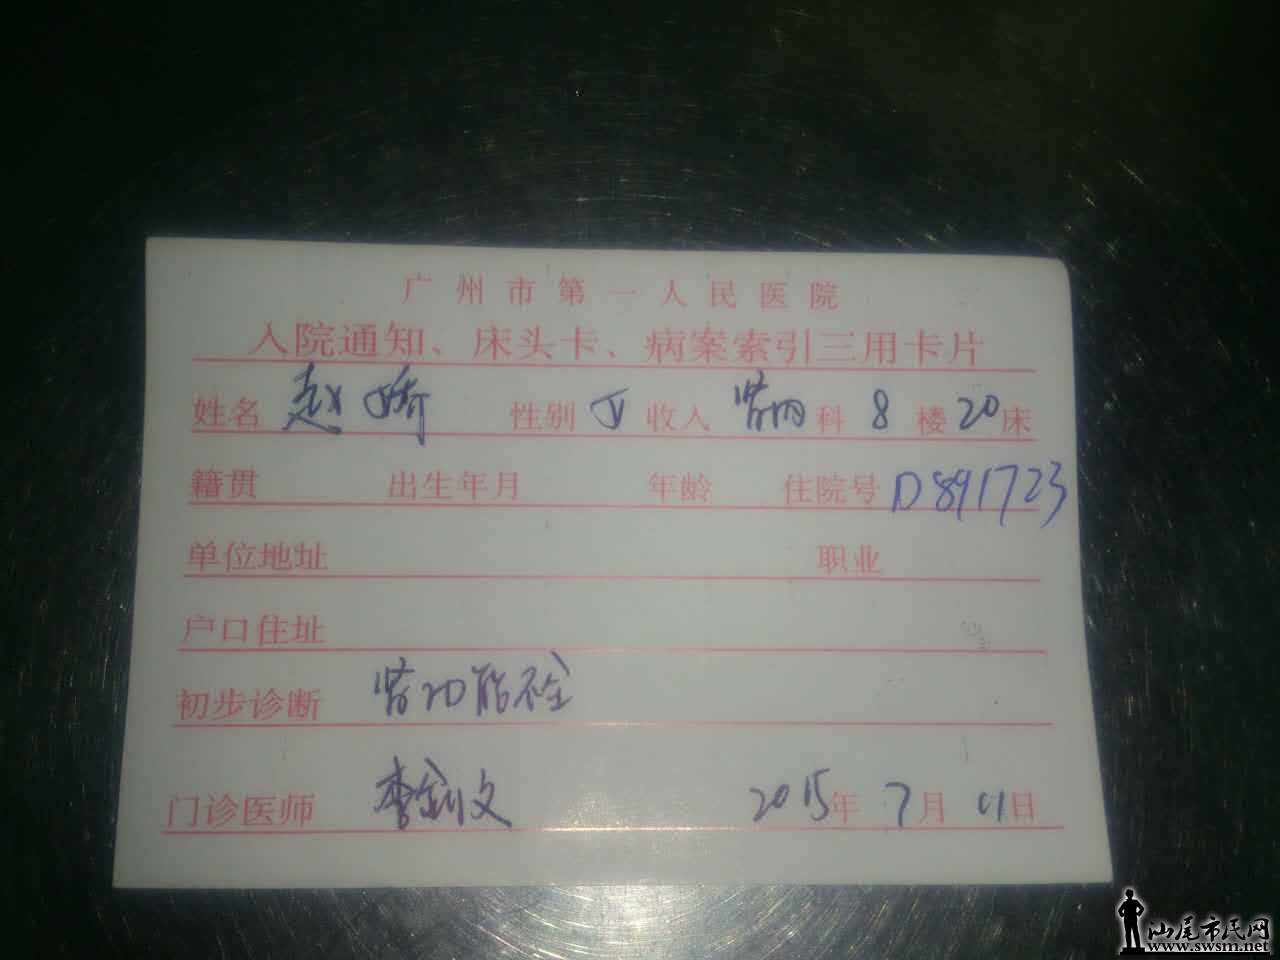 广州市第一人民医院
入院通知、床头卡、病案索引三用卡片
姓名 赵娇 性别 女 收入 肾内 科 8 楼 20 床
籍贯 出生年月 年龄 住院号 D891723
单位地址 职业
户口住址
初步诊断 肾功能不全
门诊医师 李剑文 2015年 7月 01日
汕尾市民网
www.swsm.net